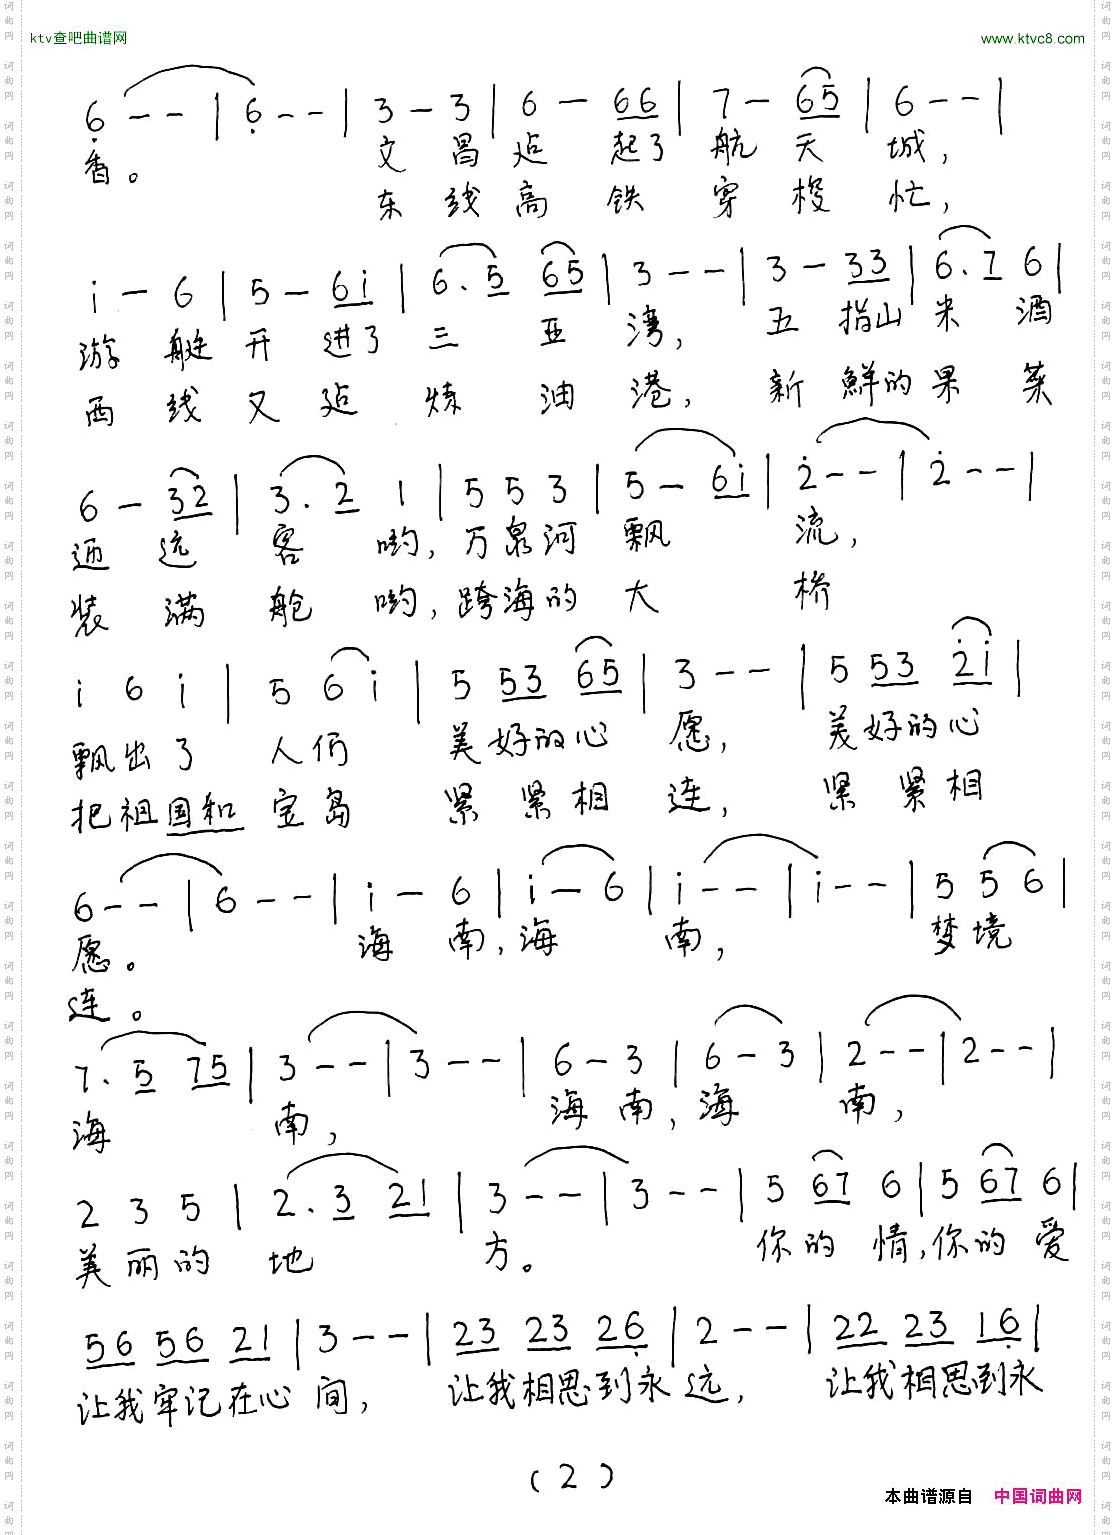 ktv查吧曲谱网 www.ktvc8.com
6̣ - - | 6̣ - - | 3 - 3 | 6 - 66 | 7 - 65 | 6 - - |
香。 文 昌 站 起了 航 天 城，
东 线 高 铁 穿 梭 忙，
i - 6 | 5 - 6i | 6. 5 65 | 3 - - | 3 - 33 | 6. 7 6 |
游 艇 开 进了 三 亚 湾， 五 指山 米 酒
西 线 又 建 炼 油 港， 新 鲜的 果 菜
6 - 32 | 3. 2 1 | 5 5 3 | 5 - 6i | 2̇ - - | 2̇ - - |
迎 远 客 哟，万泉河 飘 流，
装 满 舱 哟，跨海的 大 桥
i 6 i | 5 6 i | 5 53 65 | 3 - - | 5 53 2̇i |
飘出了 人们 美好的心 愿， 美好的心
把祖国和 宝岛 紧紧相 连， 紧紧相
6 - - | 6 - - | i - 6 | i - 6 | i - - | i - - | 5 5 6 |
愿。 海 南，海 南， 梦境
连。
7. 5 75 | 3 - - | 3 - - | 6 - 3 | 6 - 3 | 2 - - | 2 - - |
海 南， 海 南，海 南，
2 3 5 | 2. 3 21 | 3 - - | 3 - - | 5 67 6 | 5 67 6 |
美丽的 地 方。 你的 情，你的 爱
56 56 21 | 3 - - | 23 23 26̣ | 2 - - | 22 23 16̣ |
让我牢记在心 间， 让我相思到永 远， 让我相思到永
（2）
本曲谱源自 中国词曲网